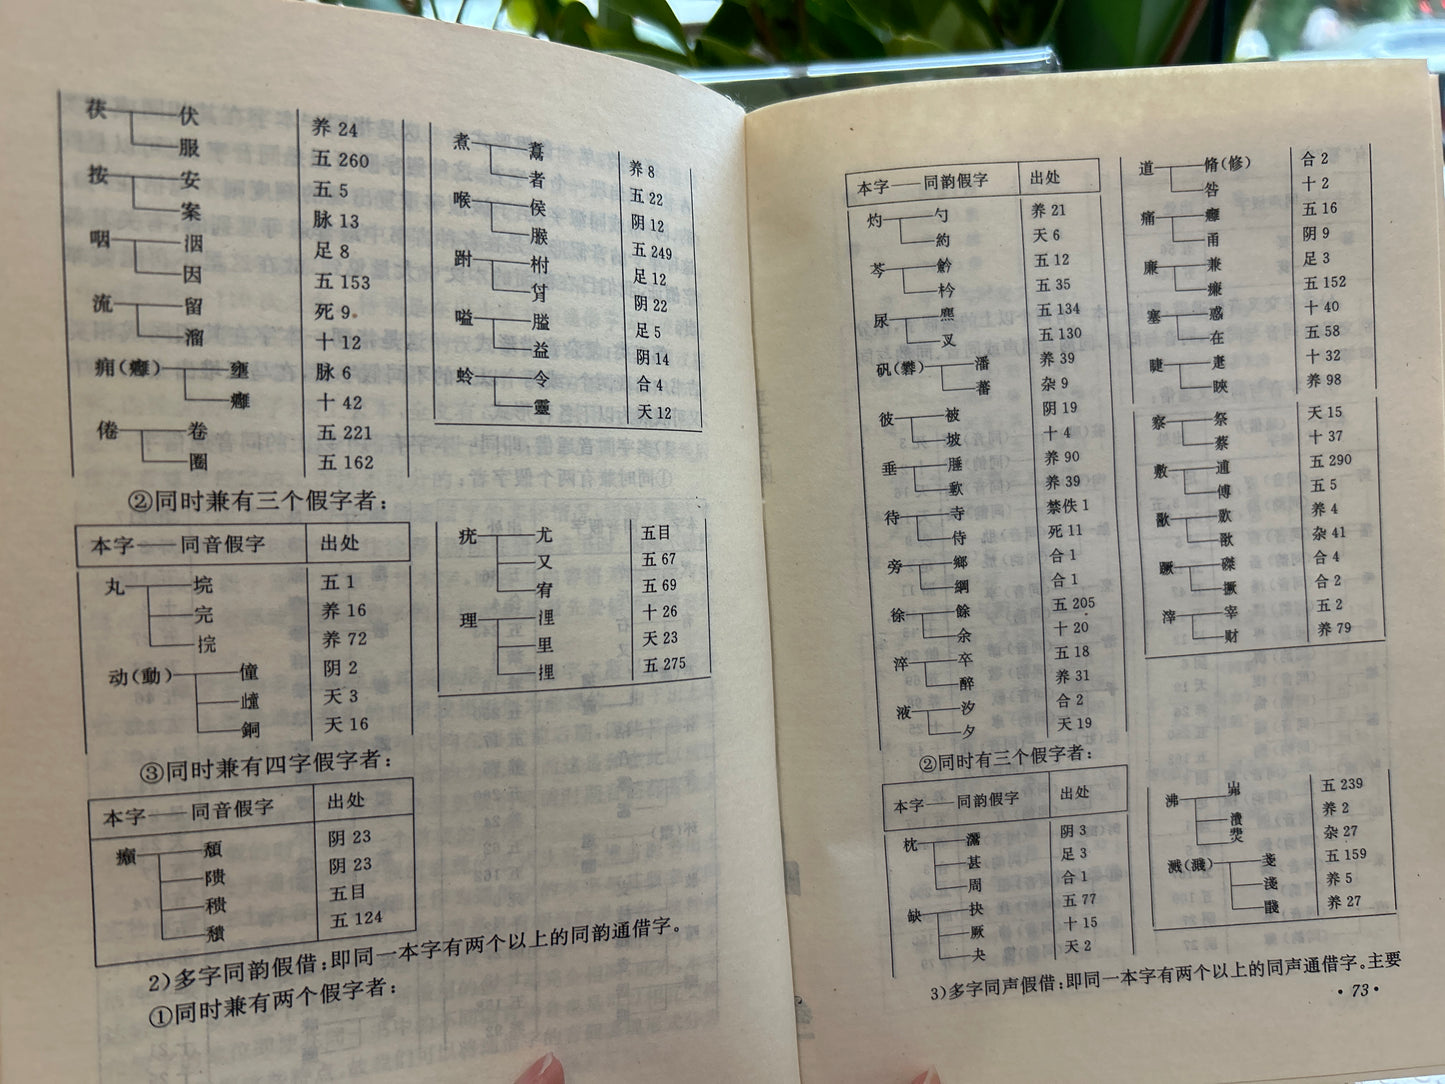 茯 伏 养 24
服 五 260
按 安 五 5
案 脉 13
咽 洇 足 8
因 五 153
流 留 死 9
溜 十 12
痈(癰) 壅 脉 6
癰 十 42
倦 卷 五 221
圈 五 162
煮 鬻 养 8
者 五 22
喉 侯 阴 12
腏 五 249
跗 柎 足 12
付 阴 22
嗌 膉 足 5
益 阴 14
蛉 令 合 4
靈 天 12
②同时兼有三个假字者:
本字——同音假字 出处
丸 垸 五 1
完 养 16
捖 养 72
动(動) 僮 阴 2
天 3
銅 天 16
疣 尤 五目
又 五 67
宥 五 69
理 浬 十 26
里 天 23
捚 五 275
③同时兼有四字假字者:
本字——同音假字 出处
癩 頹 阴 23
隤 阴 23
穨 五目
五 124
2)多字同韵假借:即同一本字有两个以上的同韵通借字。
①同时兼有两个假字者:
本字——同韵假字 出处
灼 勺 养 21
約 天 6
芩 魿 五 12
枔 五 35
尿 五 134
五 130
矾(礬) 潘 养 39
蕃 杂 9
彼 被 阴 19
坡 十 4
垂 腄 养 90
养 39
待 寺 禁佚 1
侍 死 11
旁 鄉 合 1
綱 合 1
徐 餘 五 205
余 十 20
淬 卒 五 18
醉 养 31
液 汐 合 2
夕 天 19
道 脩(修) 合 2
十 2
痛 五 16
甬 阴 9
廉 兼 足 3
五 152
塞 惑 十 40
在 五 58
睫 疌 十 32
䀹 养 98
察 祭 天 15
蔡 十 37
敷 逋 五 290
傅 五 5
养 4
杂 41
蹶 合 4
撅 合 2
滓 宰 五 2
财 养 79
②同时有三个假字者:
本字——同韵假字 出处
枕 阴 3
甚 足 3
周 合 1
缺 抉 五 77
厥 十 15
夬 天 2
沸 五 239
溃 养 2
杂 27
溅(濺) 戔 五 159
淺 养 5
养 27
3)多字同声假借:即同一本字有两个以上的同声通借字。主要
·73·